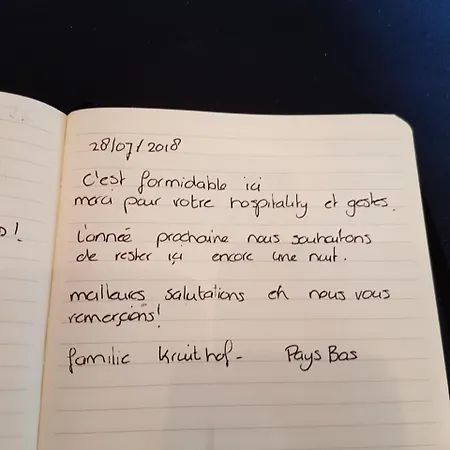 D!
28/07/2018
c'est formidable ici
merci pour votre hospitality et gestes.
l'anneé prochaine nous souhaitons
de rester ici encore une nuit.
meilleures salutations eh nous vous
remerçions!
familie Kruithof- Pays Bas